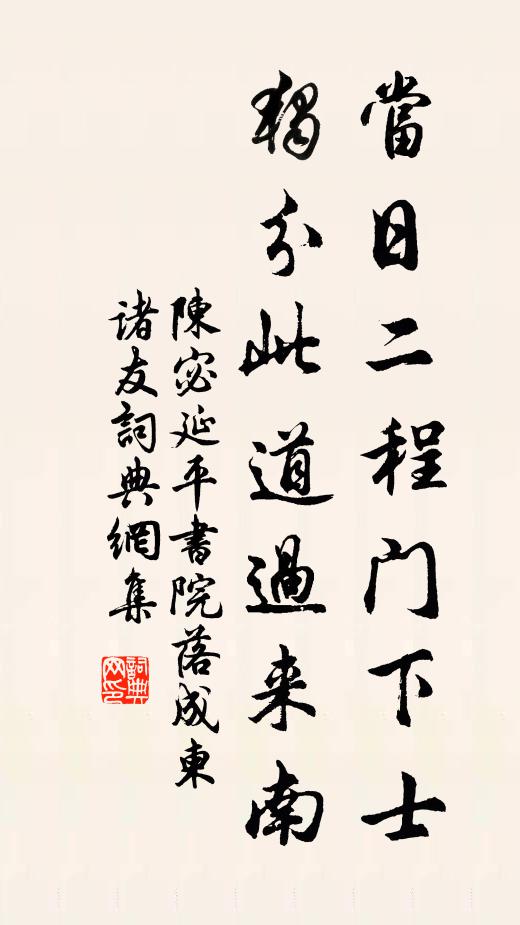 當日二程门下士
獨分此道過来南
陳宓延平書院落成東
诸友詞典網集
詞典网印